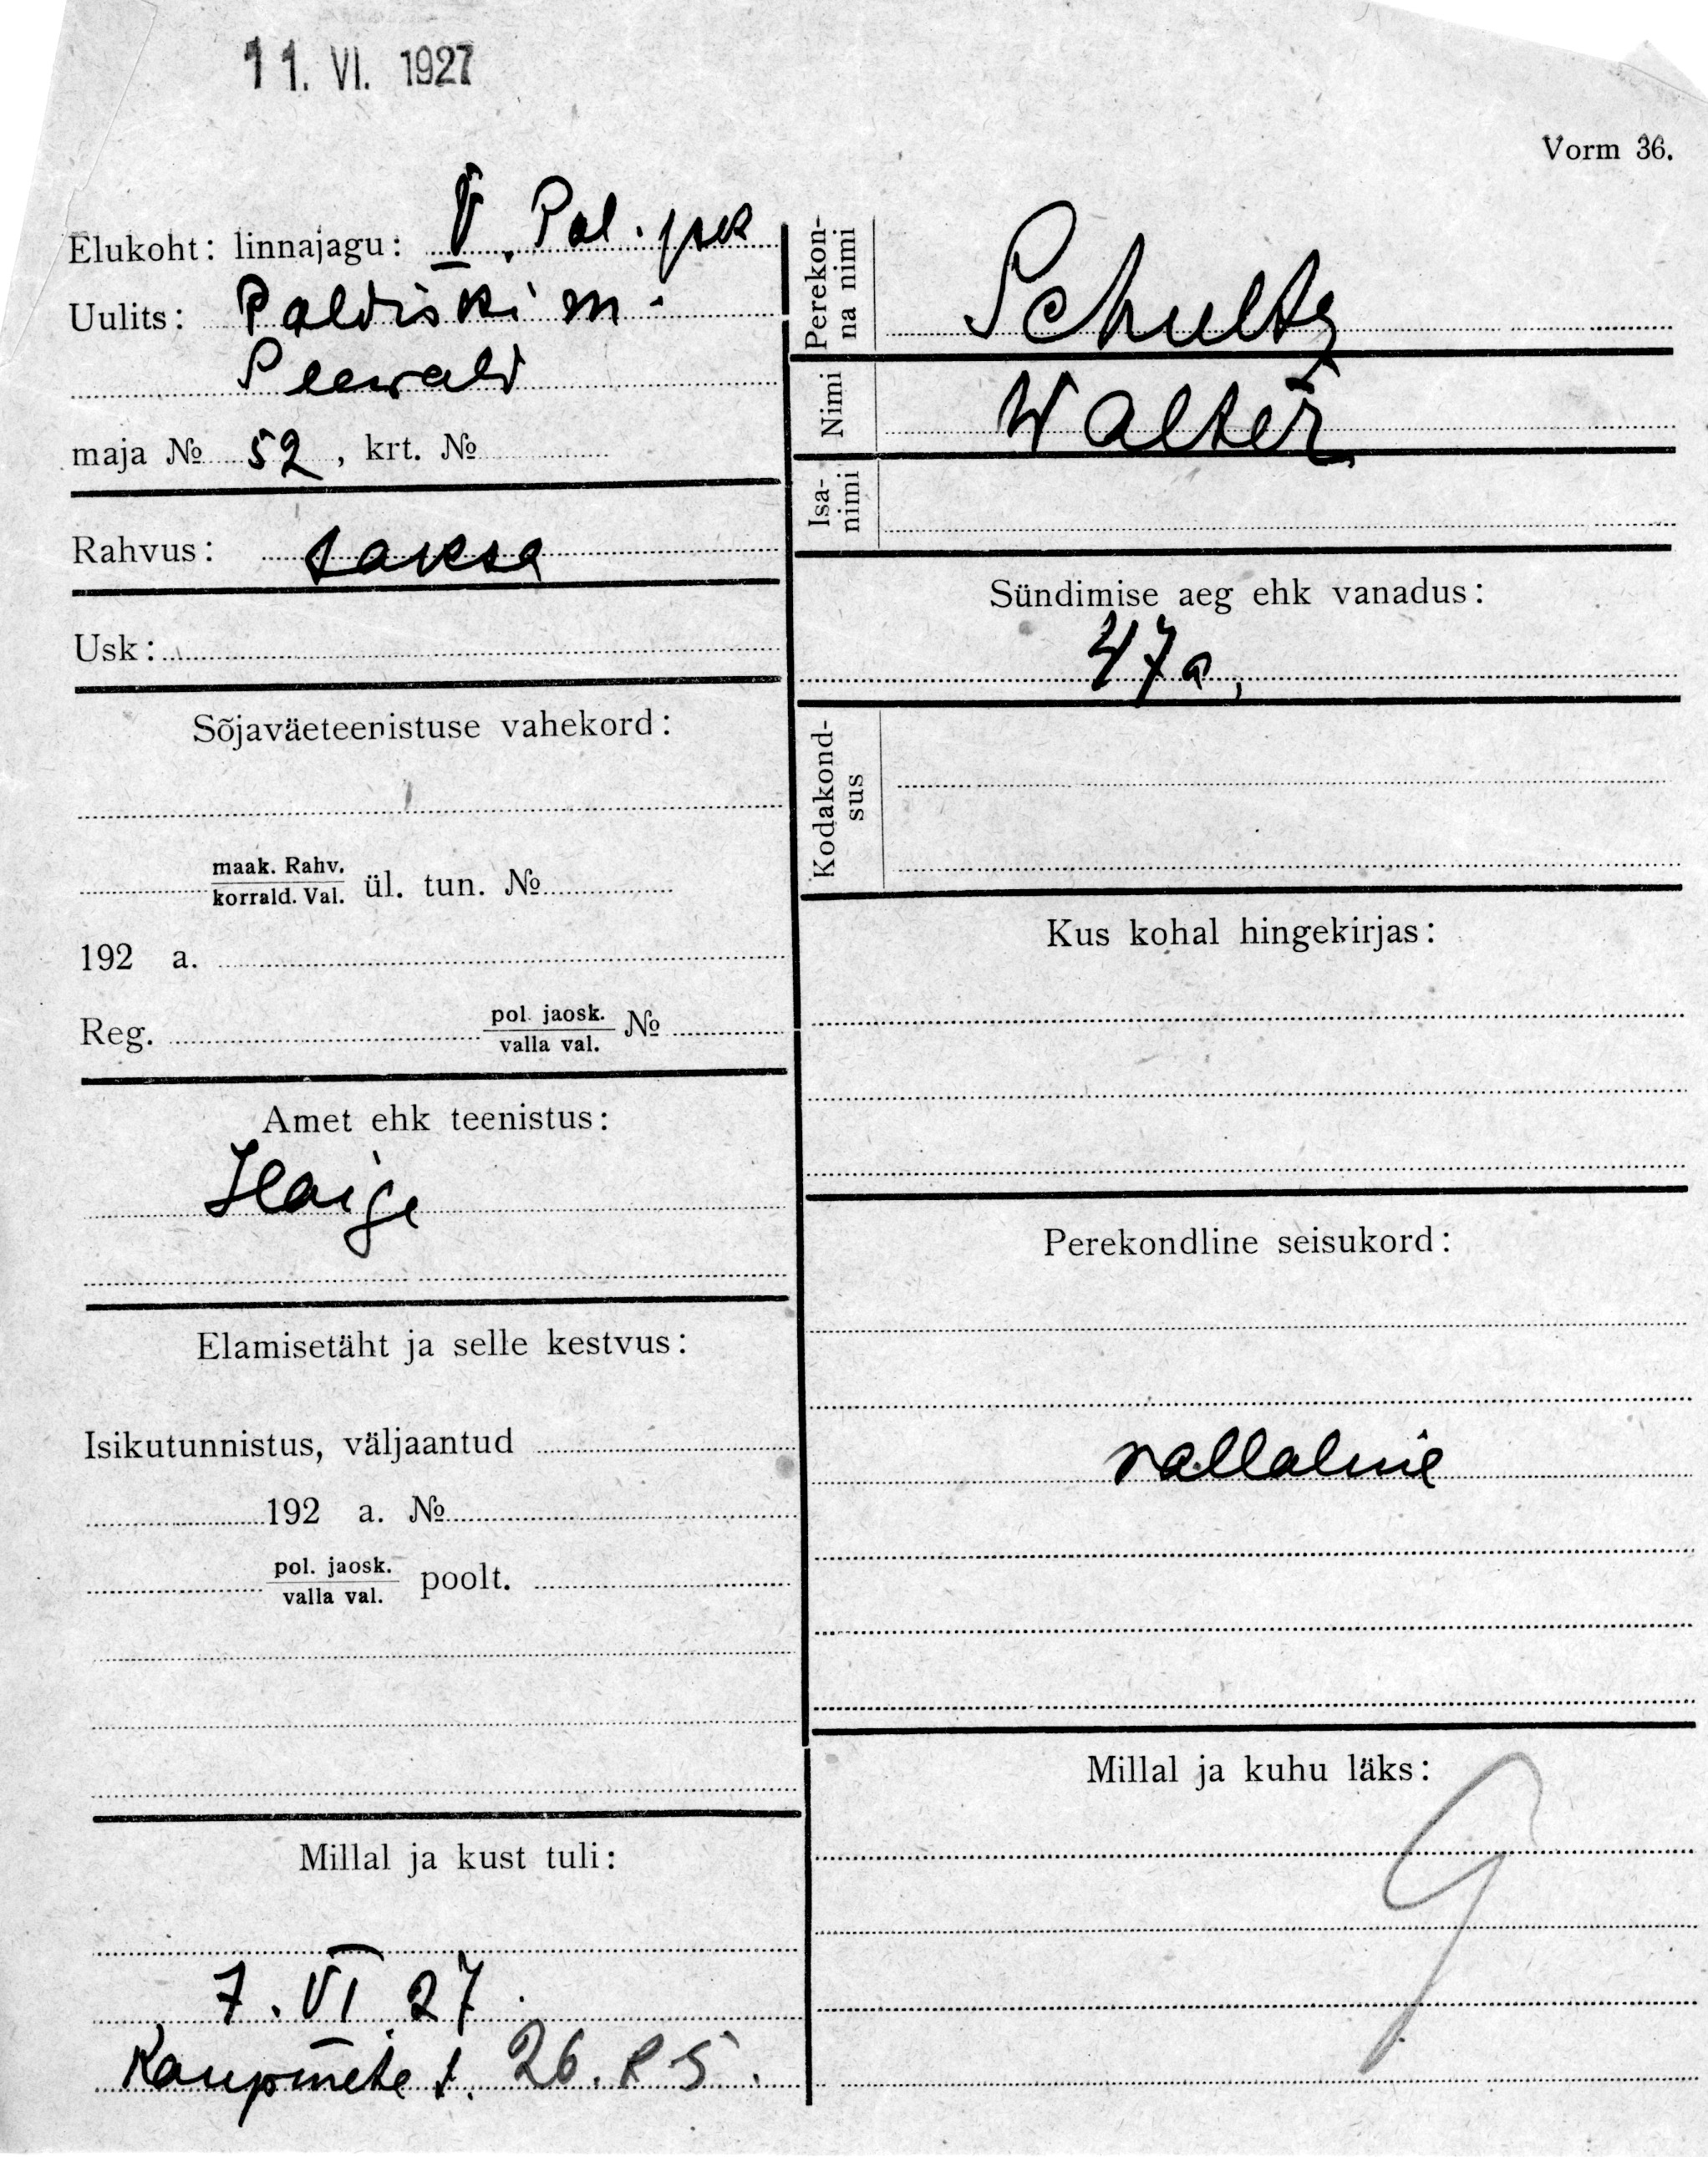 11. VI. 1927
Vorm 36.
Elukoht: linnajagu: V. Pol. jsk
Uulits: Paldiski m.
Seewald
maja № 52, krt. №
Rahvus: saksa
Usk:
Sõjaväeteenistuse vahekord:
maak. Rahv.
korrald. Val. ül. tun. №
192 a.
Reg. pol. jaosk. №
valla val.
Amet ehk teenistus:
Haige
Elamisetäht ja selle kestvus:
Isikutunnistus, väljaantud
192 a. №
pol. jaosk. poolt.
valla val.
Millal ja kust tuli:
7. VI 27.
Kaupmehe t. 26. k 5.
Perekon-
na nimi
Schultz
Nimi
Walter
Isa-
nimi
Sündimise aeg ehk vanadus:
47 a,
Kodakond-
sus
Kus kohal hingekirjas:
Perekondline seisukord:
vallaline
Millal ja kuhu läks: